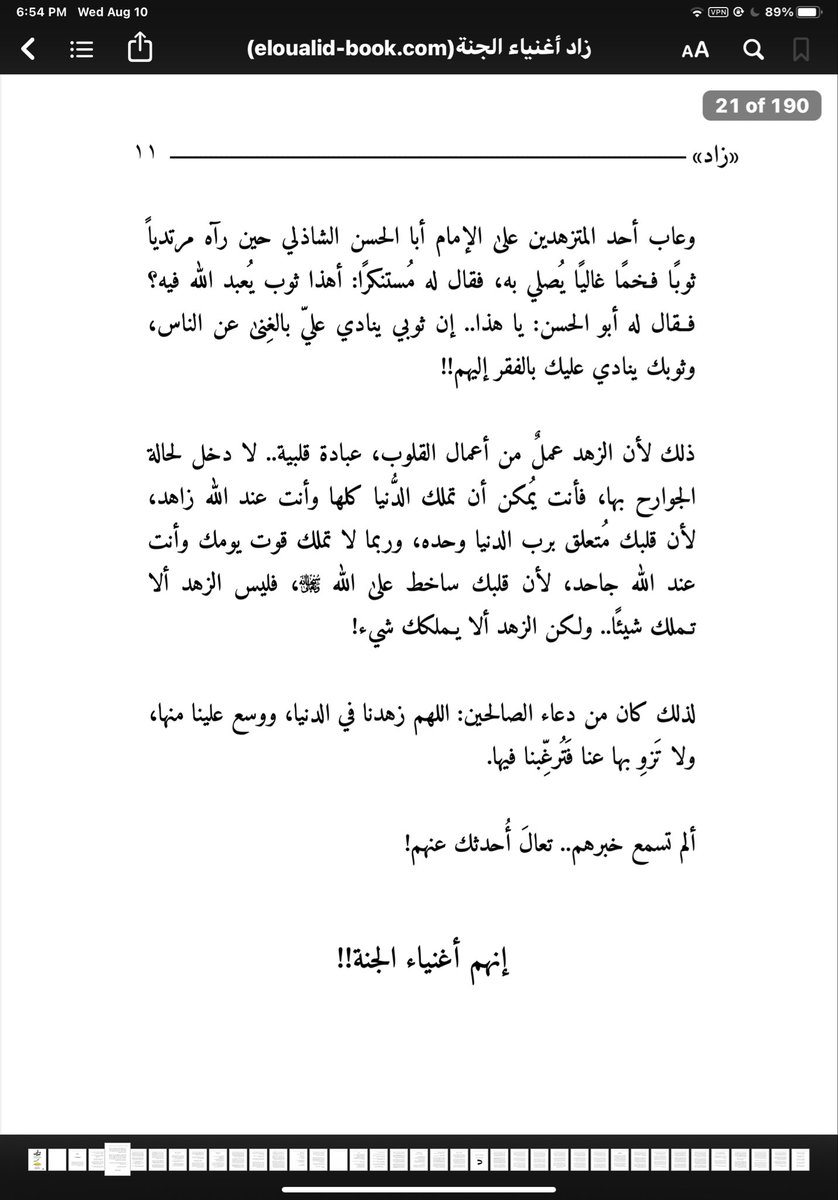 6:54 PM Wed Aug 10
VPN 89%
زاد أغنياء الجنة(eloualid-book.com)
AA
21 of 190
«زاد» ١١
وعاب أحد المتزهدين على الإمام أبا الحسن الشاذلي حين رآه مرتدياً
ثوبًا فخمًا غاليًا يُصلي به، فقال له مُستنكرًا: أهذا ثوب يُعبد الله فيه؟
فقال له أبو الحسن: يا هذا.. إن ثوبي ينادي عليّ بالغِنىٰ عن الناس،
وثوبك ينادي عليك بالفقر إليهم!!
ذلك لأن الزهد عملٌ من أعمال القلوب، عبادة قلبية.. لا دخل لحالة
الجوارح بها، فأنت يُمكن أن تملك الدُّنيا كلها وأنت عند الله زاهد،
لأن قلبك مُتعلق برب الدنيا وحده، وربما لا تملك قوت يومك وأنت
عند الله جاحد، لأن قلبك ساخط علىٰ الله، فليس الزهد ألا
تملك شيئًا.. ولكن الزهد ألا يملكك شيء!
لذلك كان من دعاء الصالحين: اللهم زهدنا في الدنيا، ووسع علينا منها،
ولا تَزوِ بها عنا فَتُرغِّبنا فيها.
ألم تسمع خبرهم.. تعالَ أُحدثك عنهم!
إنهم أغنياء الجنة!!